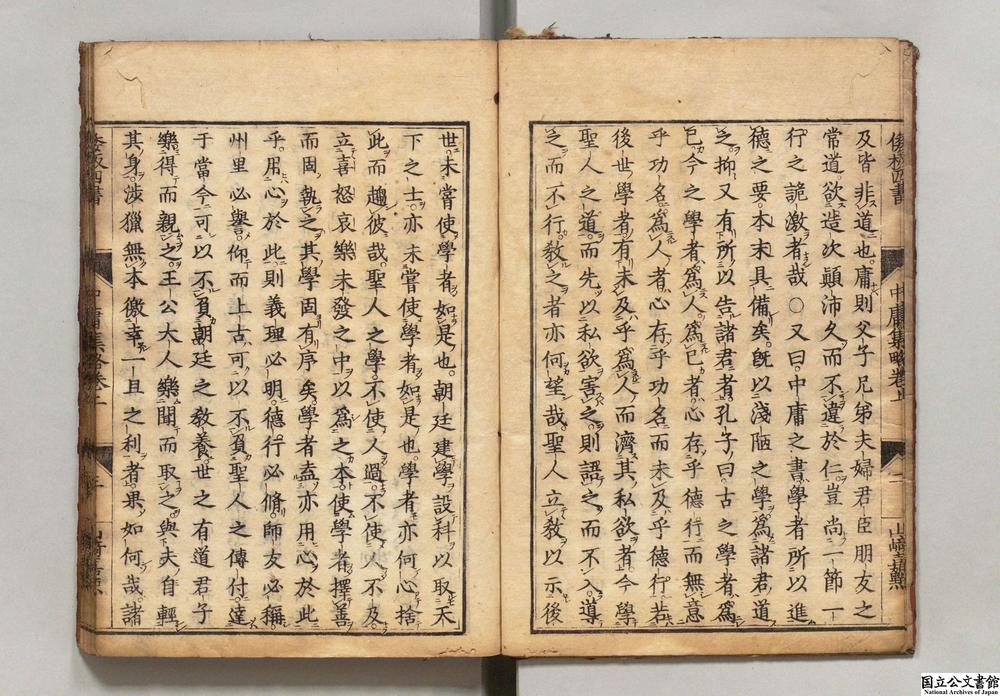 及皆非道也庸則父子兄弟夫婦君臣朋友之
常道欲造次顚沛久而不違於仁豈尚一節一
行之詭激者哉○又曰中庸之書學者所以進
德之要本末具備矣既以淺陋之學爲諸君道
之抑又有所以告諸君者孔子曰古之學者爲
已今之學者爲人爲已者心存乎德行而無意
乎功名爲人者心存乎功名而未及乎德行若
後世學者有未及乎爲人而濟其私欲者今學
聖人之道而先以私欲害之則語之而不入導
之而不行敎之者亦何望哉聖人立敎以示後
世未嘗使學者如是也朝廷建學設科以取天
下之士亦未嘗使學者如是也學者亦何心捨
此而趨彼哉聖人之學不使人過不使人不及
立喜怒哀樂未發之中以爲之本使學者擇善
而固執之其學固有序矣學者盍亦用心於此
乎用心於此則義理必明德行必脩師友必稱
州里必譽仰而上古可以不負聖人之傳付達
于當今可以不負朝廷之敎養世之有道君子
樂得而親之王公大人樂聞而取之與夫自輕
其身涉獵無本徼幸一旦之利者果如何哉諸
中庸集略卷上
國立公文書館
National Archives of Japan